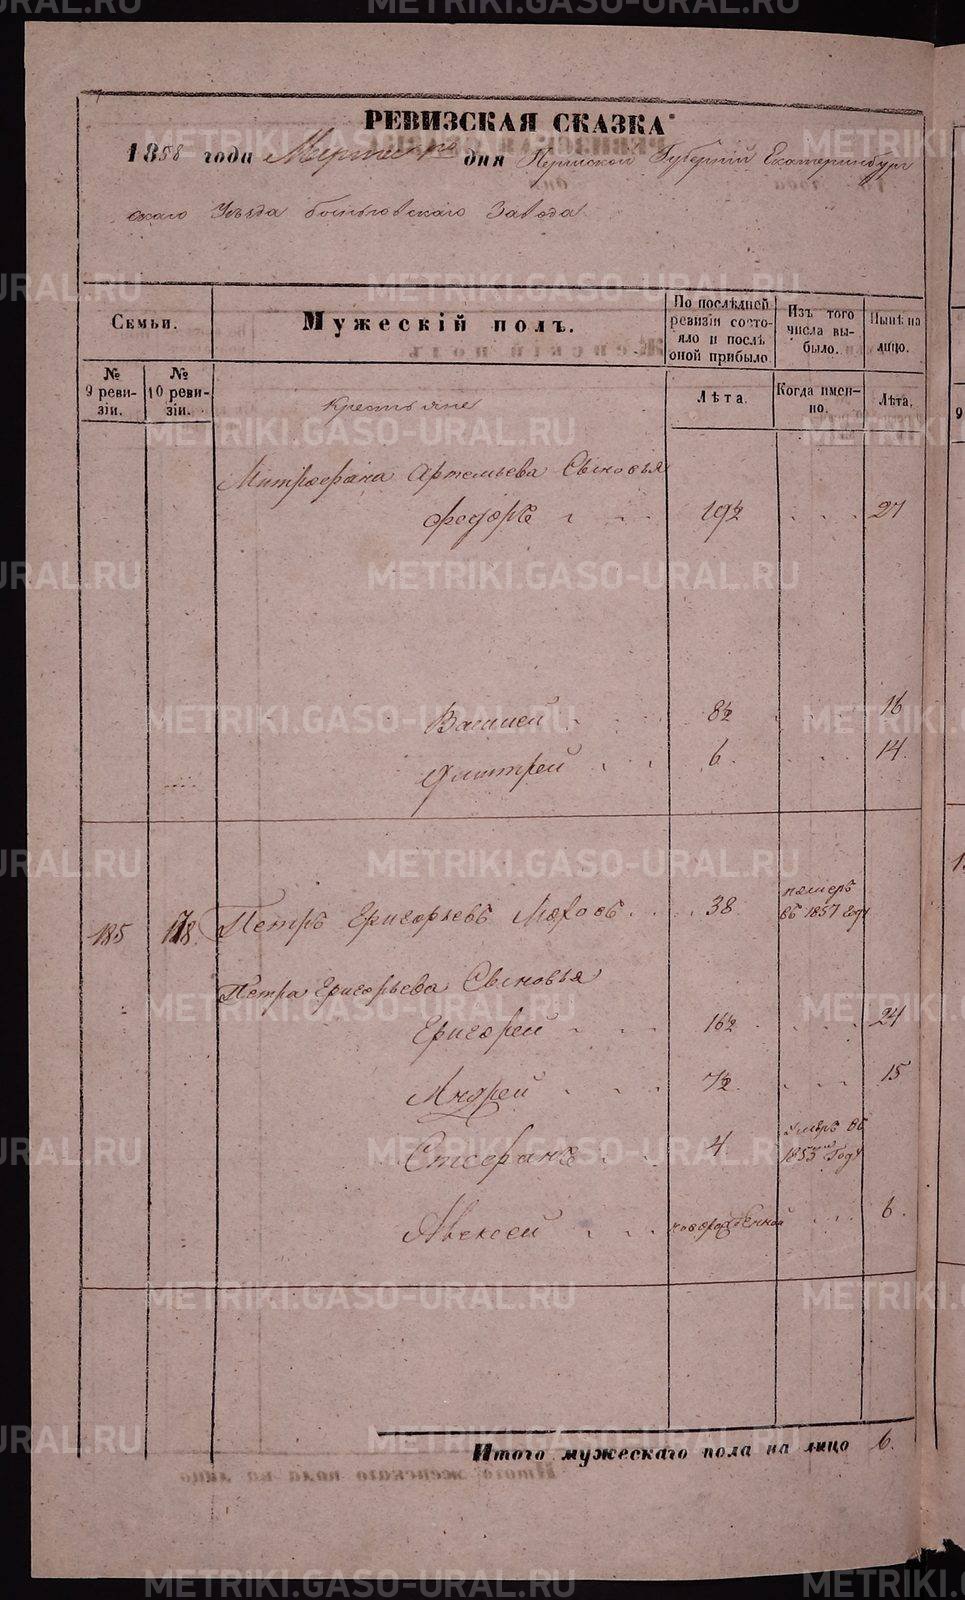 РЕВИЗСКАЯ СКАЗКА
1858 года Марта дня Пермской Губерніи Екатеринбург
скаго Уѣзда Завода
Семьи.
Мужескій полъ.
По послѣдней ревизіи состояло и послѣ оной прибыло
Изъ того числа выбыло.
Нынѣ на лицо.
№ 9 ревизіи.
№ 10 ревизіи.
Лѣта.
Когда именно.
Лѣта.
Крестьяне
Митрофана Артемьева Сыновья
Федоръ 19½ 27
Василей 8½ 16
Дмитрей 6 14
185 178 Петръ Григорьевъ 38 померъ въ 1857 году
Петра Григорьева Сыновья
Григорей 16½ 24
Андрей 7½ 15
Стефанъ 4 умеръ въ 1853 Году
Алексей новорожденной 6.
Итого мужескаго пола на лицо 6.
METRIKI.GASO-URAL.RU